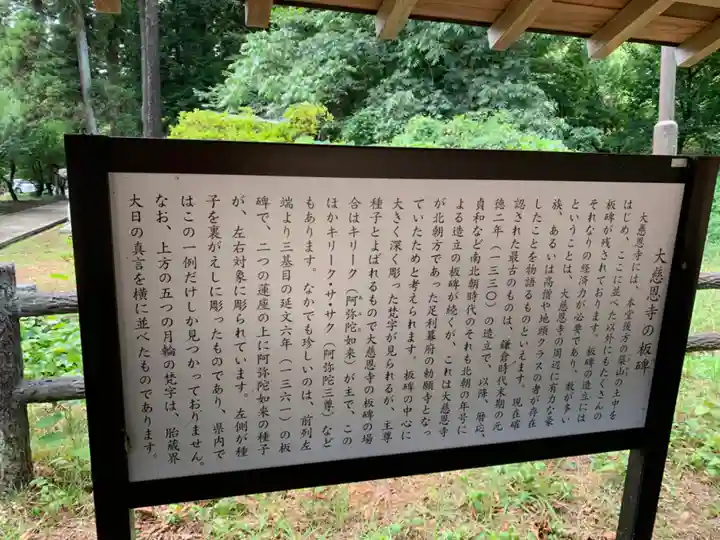 大慈恩寺の板碑
大慈恩寺には、本堂後方の築山の土中を
はじめ、ここに並べた以外にもたくさんの
板碑が残されております。板碑の造立には
それなりの経済力が必要であり、数が多い
ということは、大慈恩寺の周辺に有力な豪
族、あるいは高僧や地頭クラスの者が存在
したことを物語るものといえます。現在確
認された最古のものは、鎌倉時代末期の元
徳二年（一三三〇）の造立で、以降、暦応、
貞和など南北朝時代のそれも北朝の年号に
よる造立の板碑が続くが、これは大慈恩寺
が北朝方であった足利幕府の勅願寺となっ
ていたためと考えられます。板碑の中心に
大きく深く彫った梵字が見られるが、主尊
種子とよばれるもので大慈恩寺の板碑の場
合はキリーク（阿弥陀如来）が主で、この
ほかキリーク・サ・サク（阿弥陀三尊）など
もあります。なかでも珍しいのは、前列左
端より三基目の延文六年（一三六一）の板
碑で、二つの蓮座の上に阿弥陀如来の種子
が、左右対象に彫られています。左側が種
子を裏がえしに彫ったものであり、県内で
はこの一例だけしか見つかっておりません。
なお、上方の五つの月輪の梵字は、胎蔵界
大日の真言を横に並べたものであります。